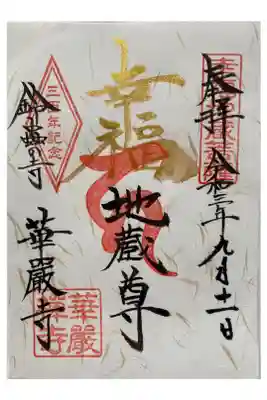 奉拝
令和三年九月十一日
幸福
地蔵尊
三百年記念
鈴蟲の寺
華嚴寺
華嚴
禅寺